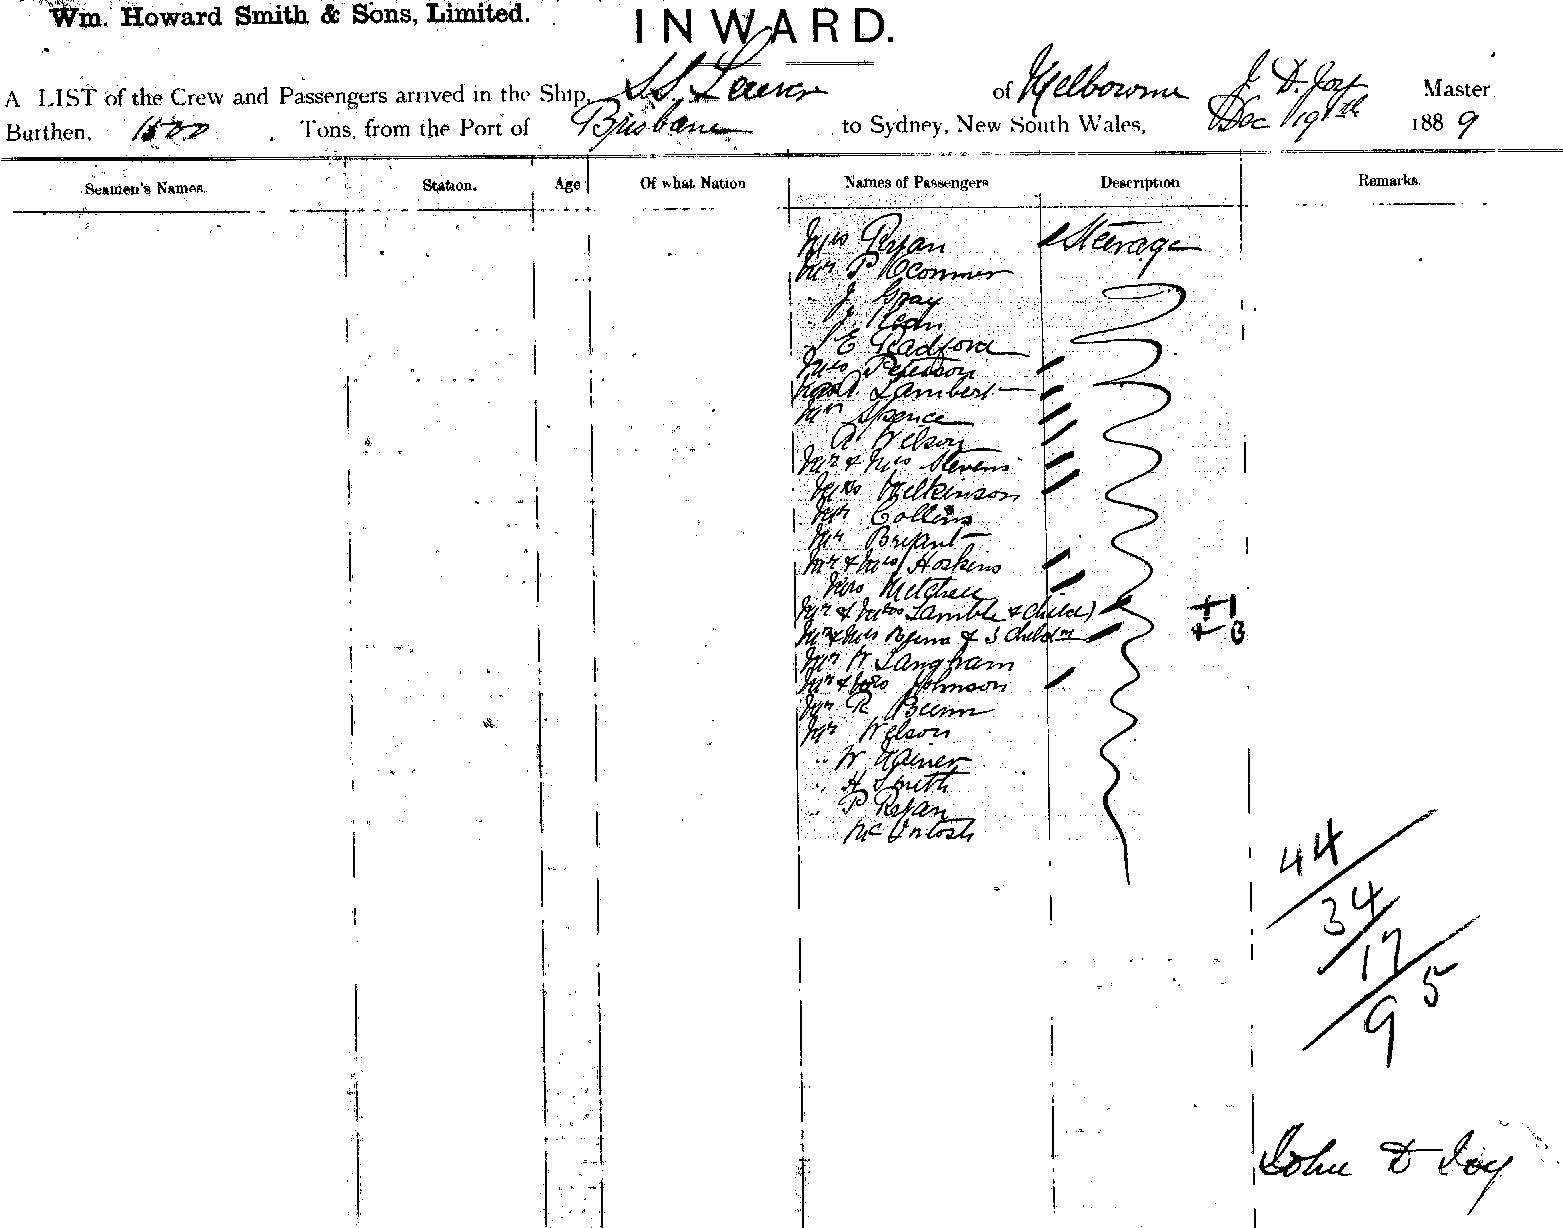 Wm. Howard Smith & Sons, Limited.
INWARD.
A LIST of the Crew and Passengers arrived in the Ship, S.S. of Melbourne J. D. Joy Master
Burthen, 1500 Tons, from the Port of Brisbane to Sydney, New South Wales, Dec 19th 1889
Seamen's Names. Station. Age Of what Nation Names of Passengers Description Remarks.
Mrs Ryan Steerage
Mr P OConnor
J Gray
J
E Radford
Mrs Peterson
Lambert
Mr Spence
A Wilson
Mr & Mrs Stevens
Mrs Wilkinson
Mr Collins
Mr Bryant
Mr & Mrs Hoskens
Mrs Mitchell
Mr & Mrs Lamble & child
Mr & Mrs & 3 childn
Mr W Langham
Mr & Mrs Johnson
Mr R
Mr Wilson
W
H Smith
P Ryan
McIntosh
44
34
17
95
John D Joy